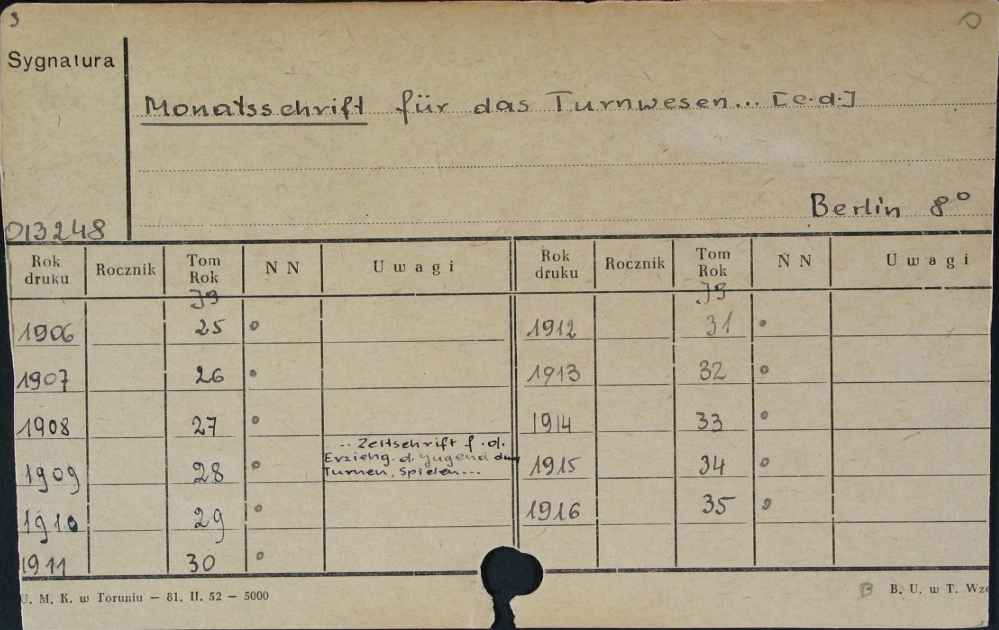 3
Sygnatura
Monatsschrift für das Turnwesen... [c.d.]
Berlin 8°
013248
Rok druku Rocznik Tom Rok NN Uwagi Rok druku Rocznik Tom Rok NN Uwagi
Jg Jg
1906 25 ° 1912 31 °
1907 26 ° 1913 32 °
1908 27 ° 1914 33 °
... Zeitschrift f. d.
Erziehg. d. Jugend du
Turnen, Spielen...
1909 28 ° 1915 34 °
1910 29 ° 1916 35 °
1911 30 °
U. M. K. w Toruniu — 81. II. 52 — 5000
B. U. w T. Wzó